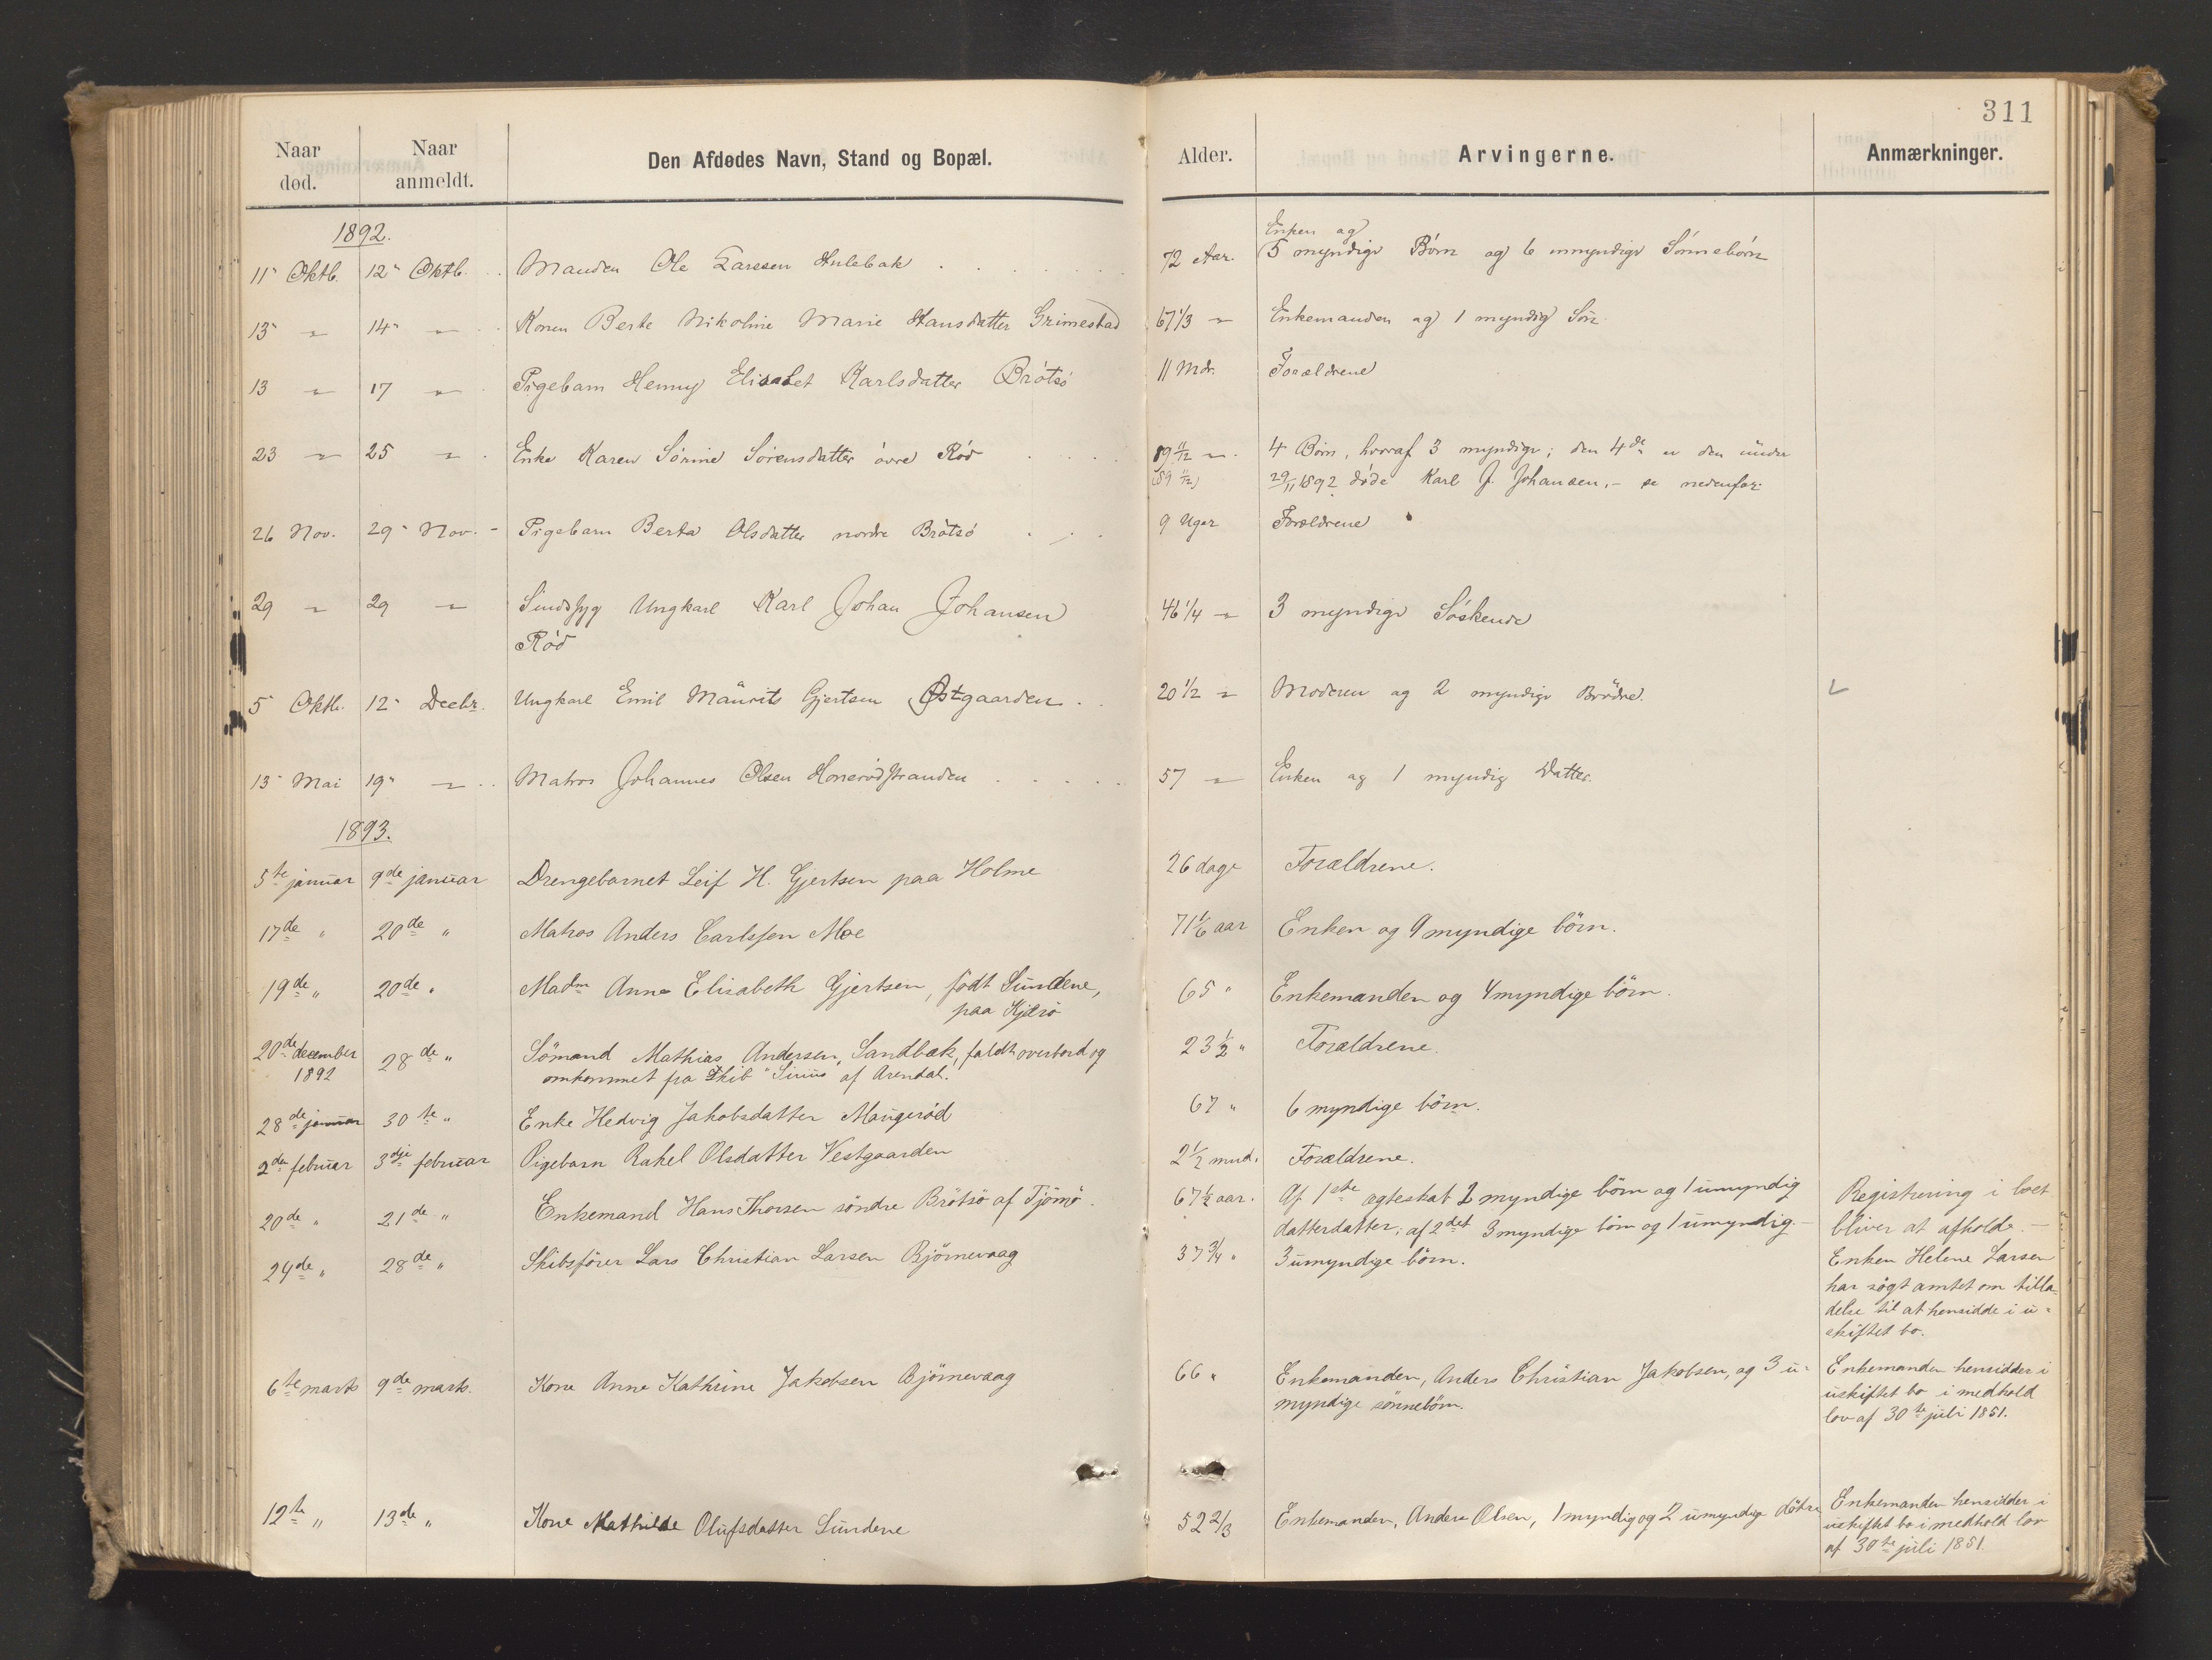 311
Naar død. Naar anmeldt. Den Afdødes Navn, Stand og Bopæl. Alder. Arvingerne. Anmærkninger.
1892.
11 Oktb. 12 Oktb. Manden Ole Larssen Hulebak 72 Aar. Enken og 5 myndige Börn og 6 umyndige Sönnebörn
13 " 14 " Konen Berte Nikoline Marie Hansdatter Grimestad 67 1/3 " Enkemanden og 1 myndig Sön
13 " 17 " Pigebarn Henny Elisabet Karlsdatter Brötsö 11 Mdr. Forældrene
23 " 25 " Enke Karen Sörine Sörensdatter övre Röd 89 11/12 " 4 Börn, hvoraf 3 myndige; den 4de er den under
(89 11/12) 29/11 1892 döde Karl J. Johansen, - se nedenfor
26 Nov. 29 Nov. Pigebarn Berta Olsdatter nordre Brötsö 9 Uger Forældrene
29 " 29 " Sindssyg Ungkarl Karl Johan Johansen 46 1/4 " 3 myndige Söskende
Röd
5 Oktb. 12 Decbr. Ungkarl Emil Maurits Gjertsen Østgaarden 20 1/2 " Moderen og 2 myndige Brödre.
13 Mai 19 " Matros Johannes Olsen Honerödstranden 57 " Enken og 1 myndig Datter.
1893.
5te januar 9de januar Drengebarnet Leif H. Gjertsen paa Holme 26 dage Forældrene.
17de " 20de " Matros Anders Carlssen Moe 71 1/6 aar Enken og 9 myndige börn.
19de " 20de " Madm Anne Elisabeth Gjertsen, födt Sundene, 65 " Enkemanden og 4 myndige börn.
paa Kjærö
20de december 1892 28de " Sömand Mathias Andersen, Sandbæk, faldt overbord og 23 1/2 " Forældrene.
omkommet fra Skib "Sirius" af Arendal.
28de januar 30te " Enke Hedvig Jakobsdatter Maugeröd 67 " 6 myndige börn.
2den februar 3dje februar Pigebarn Rakel Olsdatter Vestgaarden 2 1/2 mnd. Forældrene.
20de " 21de " Enkemand Hans Thorsen söndre Brötsö af Tjömö. 67 1/2 aar. Af 1ste ægteskab 2 myndige börn og 1 umyndig Registrering i boet
datterdatter; af 2det 3 myndige börn og 1 umyndig. - bliver at afholde -
24de " 28de " Skibsförer Lars Christian Larsen Björnevaag 37 3/4 " 3 umyndige börn. Enken Helene Larsen
har sögt amtet om tilla-
delse til at hensidde i u-
skiftet bo.
6te marts 9de marts. Kone Anne Kathrine Jakobsen Björnevaag 66 " Enkemanden, Anders Christian Jakobsen, og 3 u- Enkemanden hensidder i
myndige sönnebörn. uskiftet bo i medhold
lov af 30te juli 1851.
12te " 13de " Kone Mathilde Olufsdatter Sundene 52 2/3 Enkemanden, Anders Olsen, 1 myndig og 2 umyndige dötre Enkemanden hensidder i
uskiftet bo i medhold lov
af 30te juli 1851.